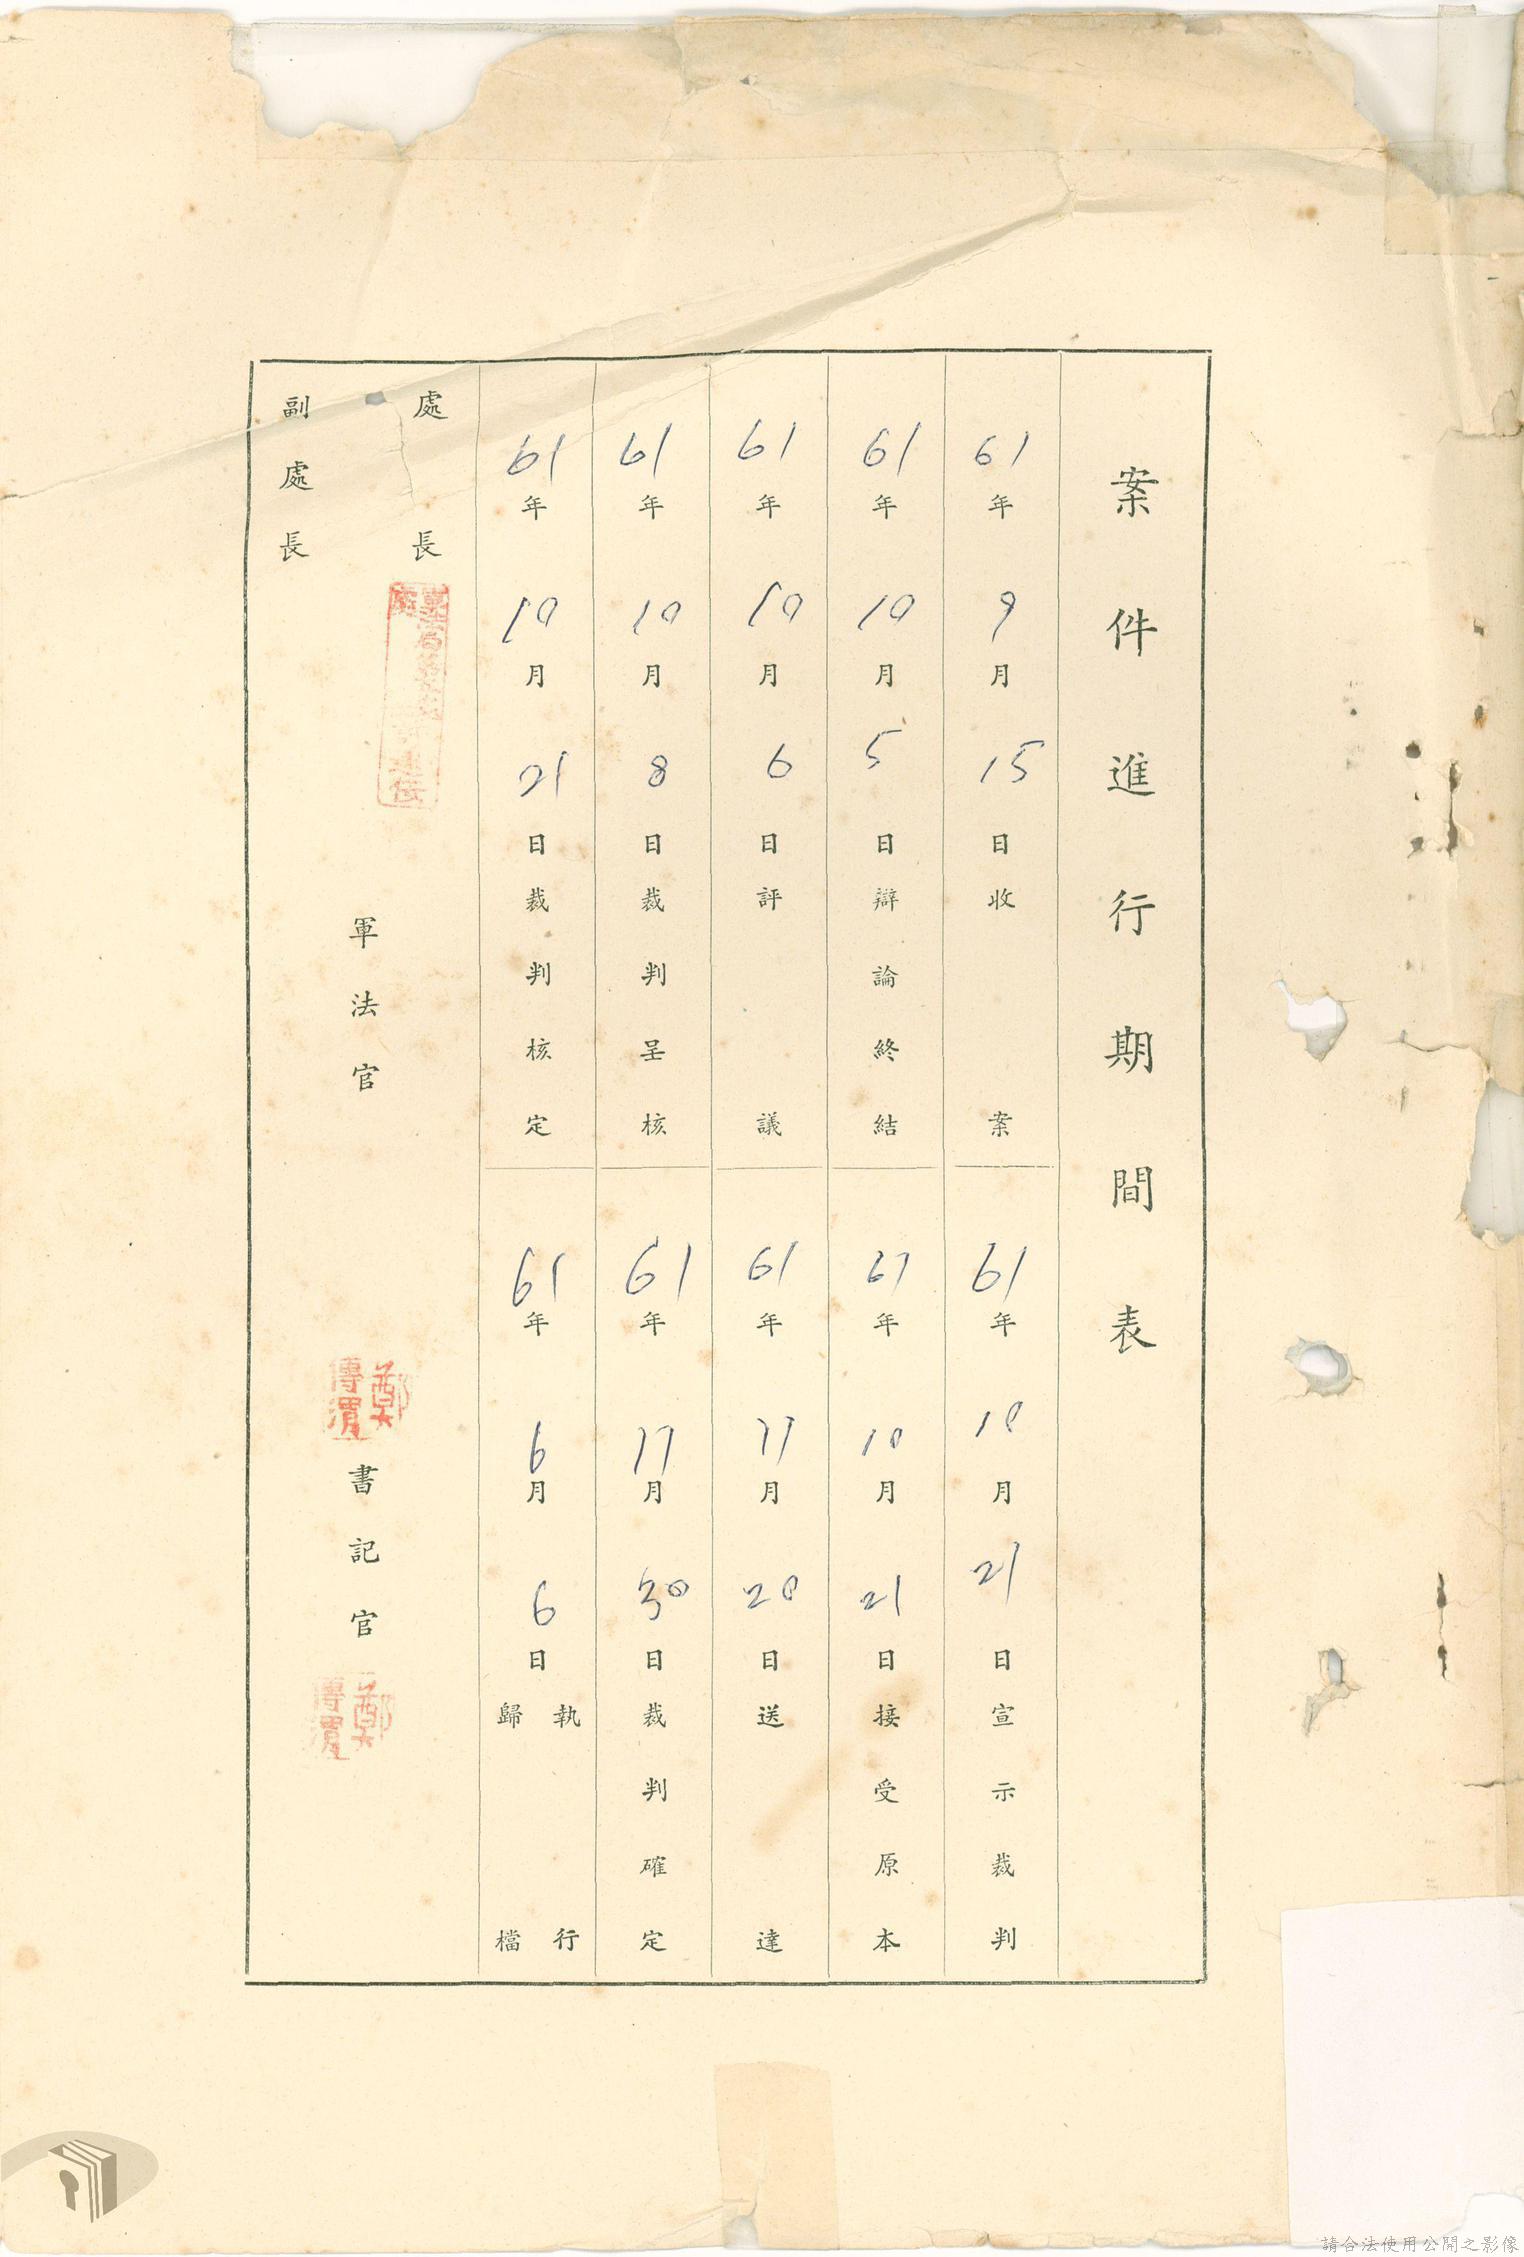 案件進行期間表
61年9月15日收案
61年10月21日宣示裁判
61年10月5日辯論終結
61年10月21日接受原本
61年10月6日評議
61年11月20日送達
61年10月8日裁判呈核
61年11月30日裁判確定
61年10月21日裁判核定
61年6月6日執行歸檔
處長
副處長
軍法官
鄭傳渭
書記官
鄭傳渭
請合法使用公開之影像